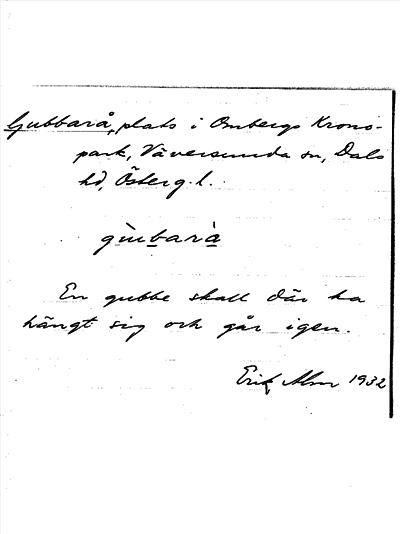 Gubbarå, plats i Ombergs Krono-
park, Väversunda sn, Dals
hd, Österg. l.
gu̇barà
En gubbe skall där ha
hängt sig och går igen.
Erik Alm 1932